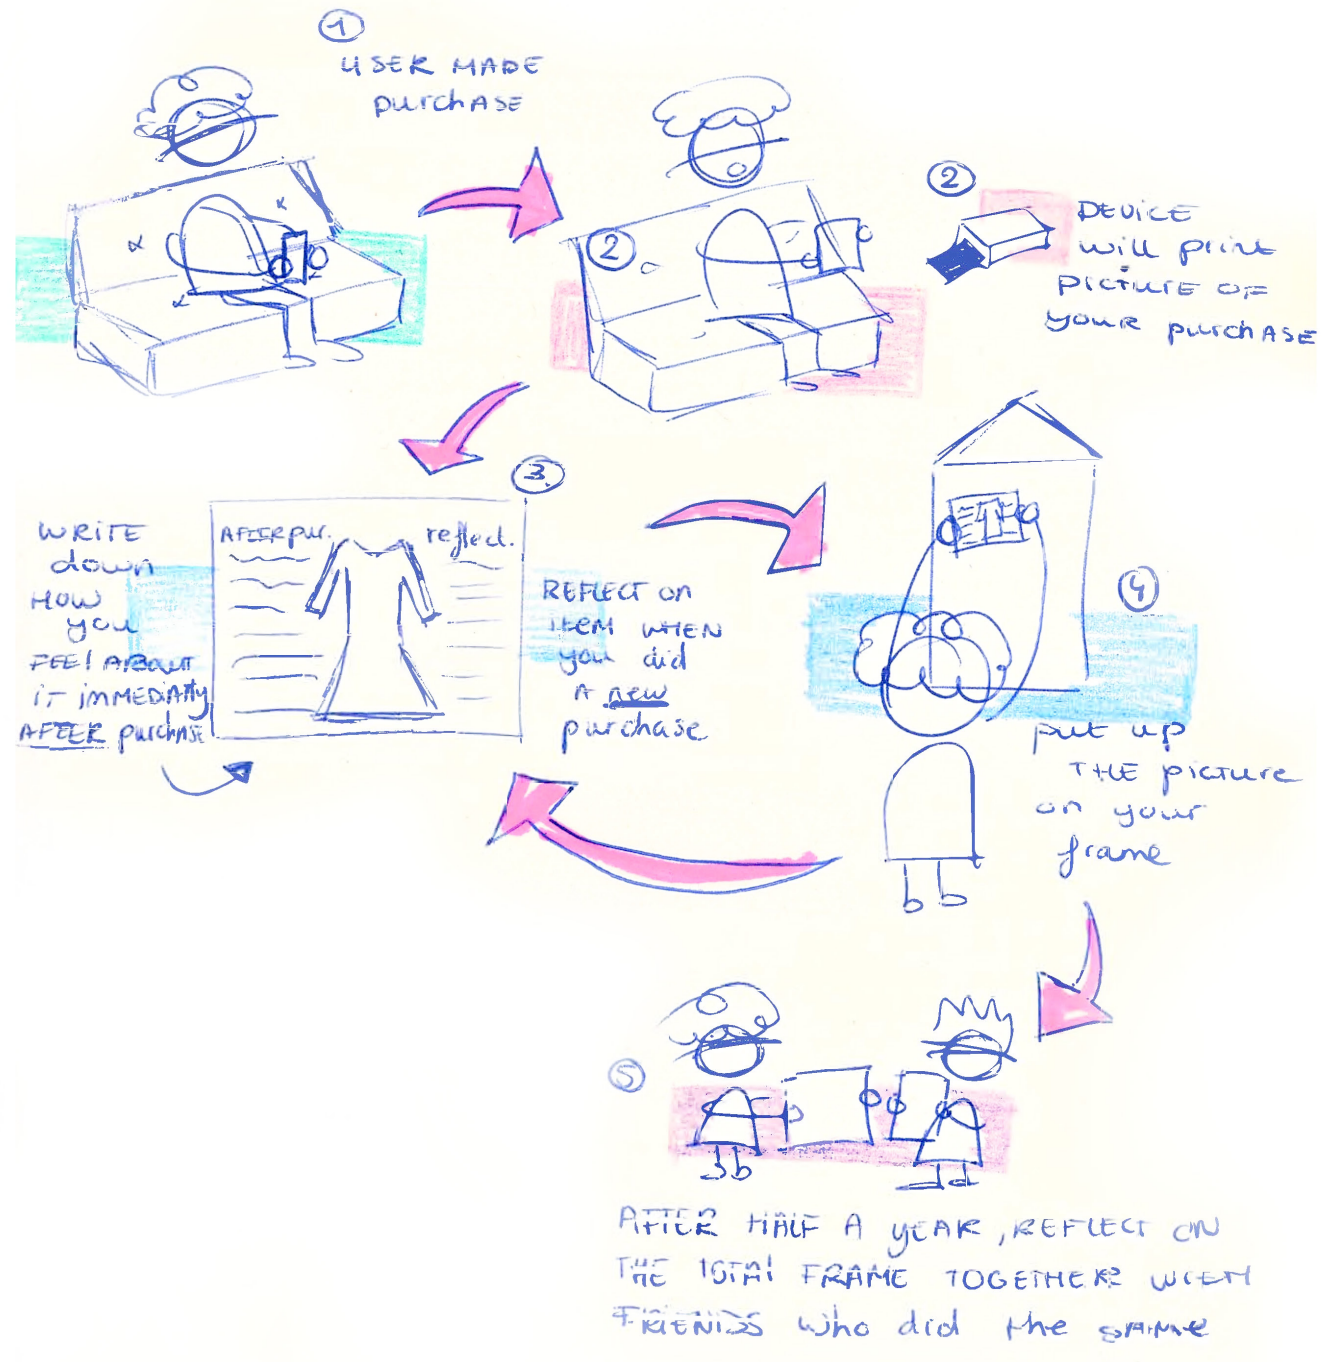 1
USER MADE
purchase
2
2
DEVICE
will print
picture of
your purchase
3.
WRITE
down
HOW
you
FEEl ABOUT
it immediatly
AFTER purchase
AFTER pur.
reflect.
REFLECT on
item WHEN
you did
A new
purchase
4
put up
THE picture
on your
frame
5
AFTER HALF A YEAR, REFLECT ON
THE TOTAl FRAME TOGETHER WITH
FRIENDS who did the SAME